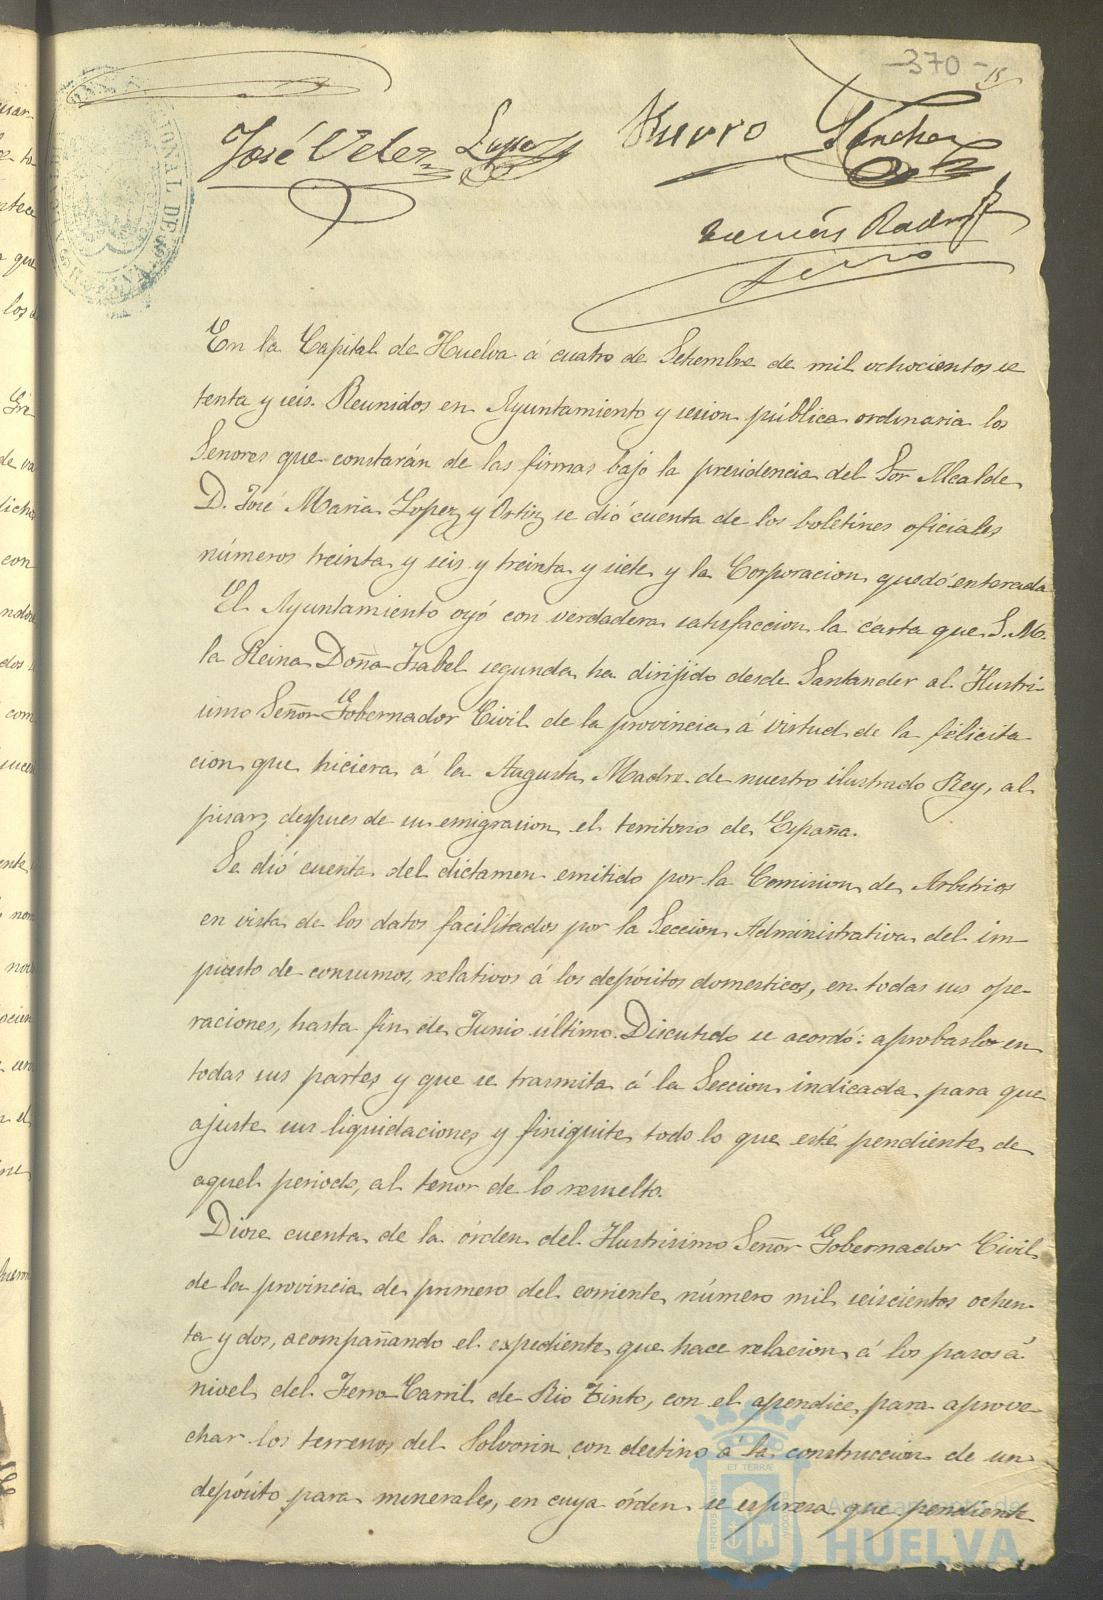 -370-
José Velez
Sanchez
En la Capital de Huelva á cuatro de Setiembre de mil ochocientos se
tenta y seis. Reunidos en Ayuntamiento y sesion pública ordinaria los
Señores que constarán de las firmas bajo la presidencia del Sor Alcalde
D. José Maria Lopez y Ortiz se dió cuenta de los boletines oficiales
números treinta y seis y treinta y siete y la Corporacion quedó enterada
El Ayuntamiento oyó con verdadera satisfaccion la carta que S. M.
la Reina Doña Isabel segunda ha dirijido desde Santander al Ilustrí-
simo Señor Gobernador Civil de la provincia á virtud de la felicita
cion que hiciera á la Augusta Madre de nuestro ilustrado Rey, al
pisar, despues de su emigracion, el territorio de España.
Se dió cuenta del dictamen emitido por la Comision de Arbitrios
en vista de los datos facilitados por la Seccion Administrativa del im-
puesto de consumos, relativos á los depósitos domesticos, en todas sus ope-
raciones, hasta fin de Junio último. Discutido se acordó: aprobarlo en
todas sus partes y que se trasmita á la Seccion indicada para que
ajuste sus liquidaciones y finiquite todo lo que esté pendiente de
aquel periodo, al tenor de lo resuelto.
Diose cuenta de la órden del Ilustrisimo Señor Gobernador Civil
de la provincia de primero del corriente, número mil seiscientos ochen-
ta y dos, acompañando el espediente que hace relacion á los pasos á
nivel del Ferro Carril de Rio Tinto, con el apendice para aprove-
char los terrenos del Polvorin con destino á la construccion de un
depósito para minerales, en cuya órden se espresa que pendiente
Ayuntamiento de
HUELVA